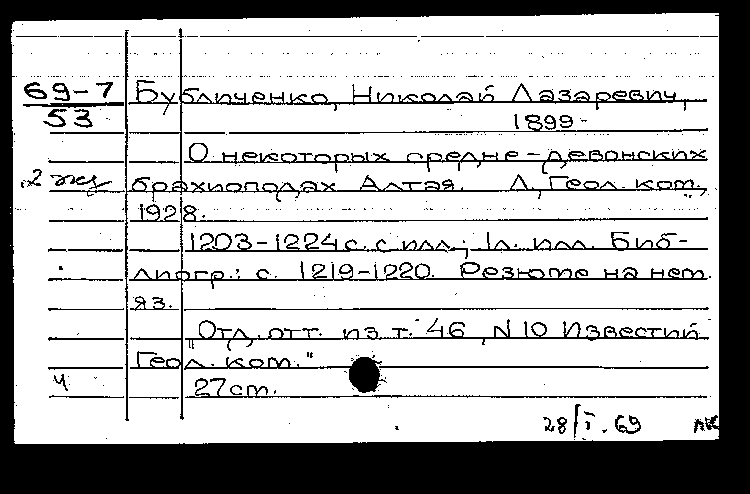 69-7 Бубличенко, Николай Лазаревич,
53 1899-
О некоторых средне-девонских
2 экз брахиоподах Алтая. Л., Геол. ком.,
1928.
1203-1224 с. с илл.; 1 л. илл. Биб-
лиогр.: с. 1219-1220. Резюме на нем.
яз.
"Отд. отт. из т. 46, N 10 Известий
Геол. ком."
Ч 27 см.
28/I.69 ЛК